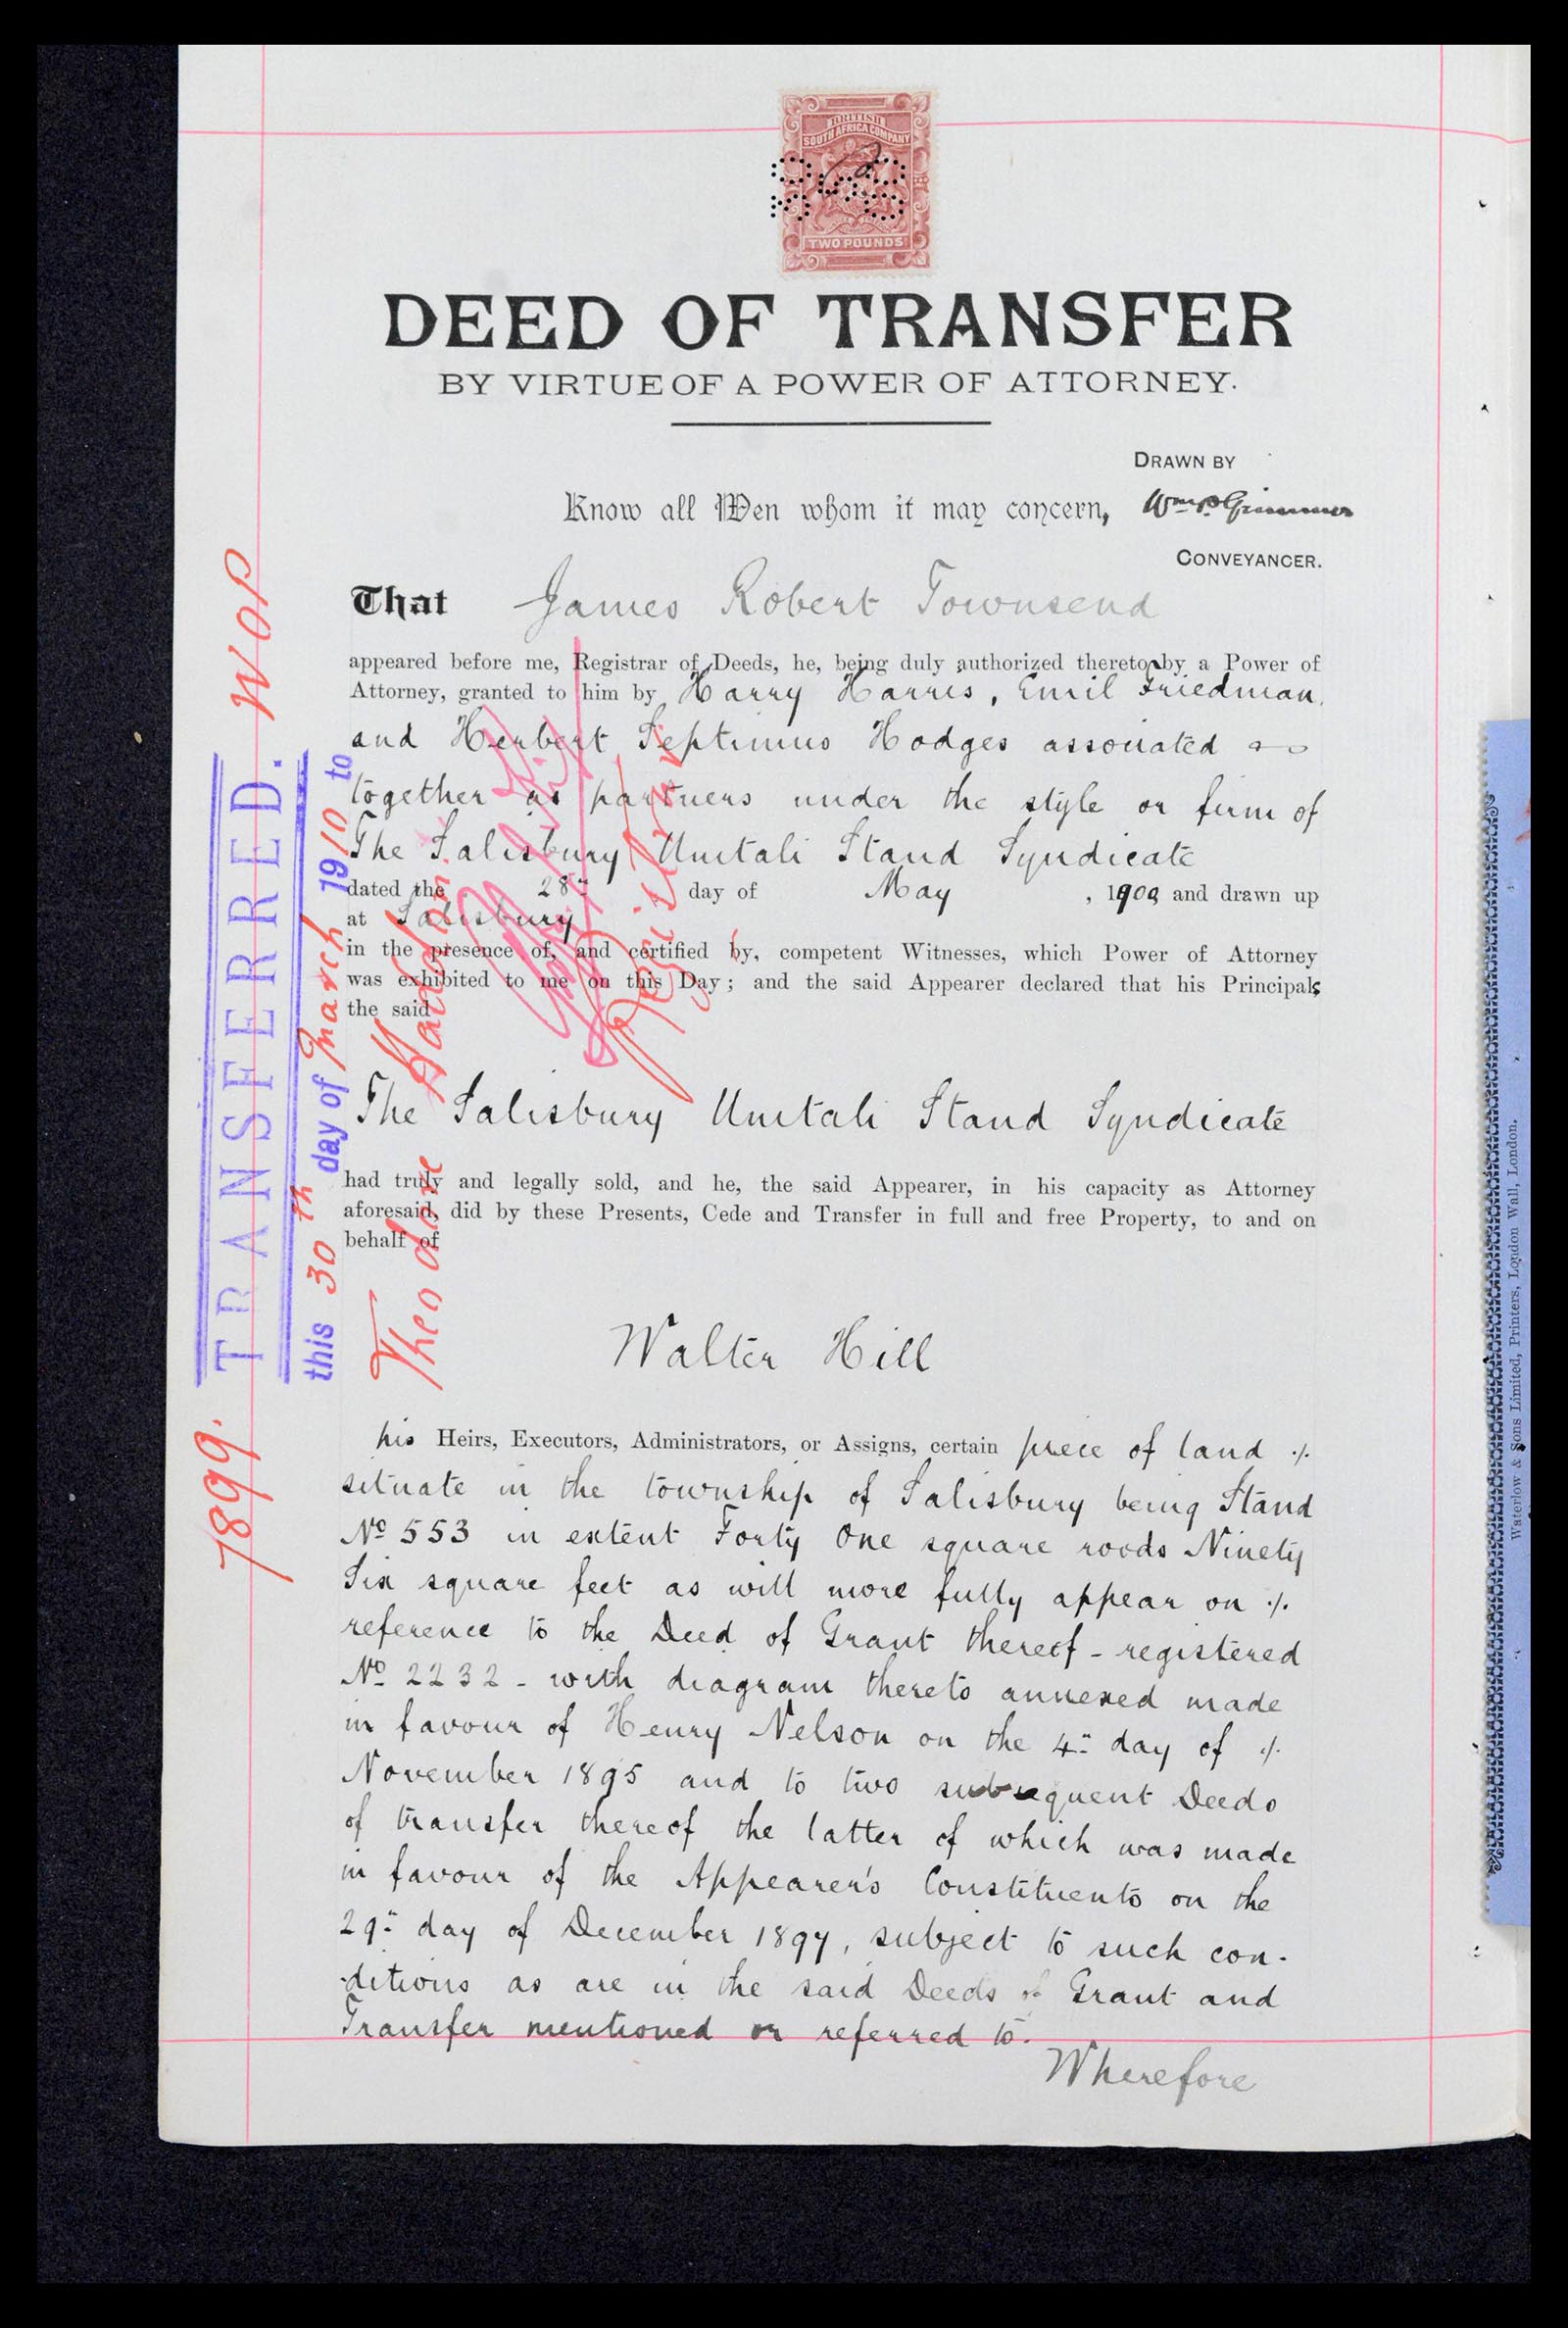 BRITISH
SOUTH AFRICA COMPANY
TWO POUNDS
DEED OF TRANSFER
BY VIRTUE OF A POWER OF ATTORNEY.
DRAWN BY
Know all Men whom it may concern, Wm. P. Grimmer
CONVEYANCER.
That James Robert Townsend
appeared before me, Registrar of Deeds, he, being duly authorized thereto by a Power of
Attorney, granted to him by Harry Harris, Emil Friedman,
and Herbert Septimus Hodges associated
together as partners under the style or firm of
The Salisbury Umtali Stand Syndicate
dated the 28" day of May, 1900 and drawn up
at Salisbury
in the presence of, and certified by, competent Witnesses, which Power of Attorney
was exhibited to me on this Day; and the said Appearer declared that his Principals
the said
The Salisbury Umtali Stand Syndicate
had truly and legally sold, and he, the said Appearer, in his capacity as Attorney
aforesaid, did by these Presents, Cede and Transfer in full and free Property, to and on
behalf of
Walter Hill
his Heirs, Executors, Administrators, or Assigns, certain piece of land ·/.
situate in the township of Salisbury being Stand
No 553 in extent Forty One square roods Ninety
Six square feet as will more fully appear on ·/.
reference to the Deed of Grant thereof - registered
No 2232 - with diagram thereto annexed made
in favour of Henry Nelson on the 4" day of ·/.
November 1895 and to two subsequent Deeds
of transfer thereof the latter of which was made
in favour of the Appearer's Constituents on the
29" day of December 1897, subject to such con-
-ditions as are in the said Deeds of Grant and
Transfer mentioned or referred to.
Wherefore
7899. TRANSFERRED. WOP
this 30th day of March 1910 to
Theodore
Registrar
Waterlow & Sons Limited, Printers, London Wall, London.